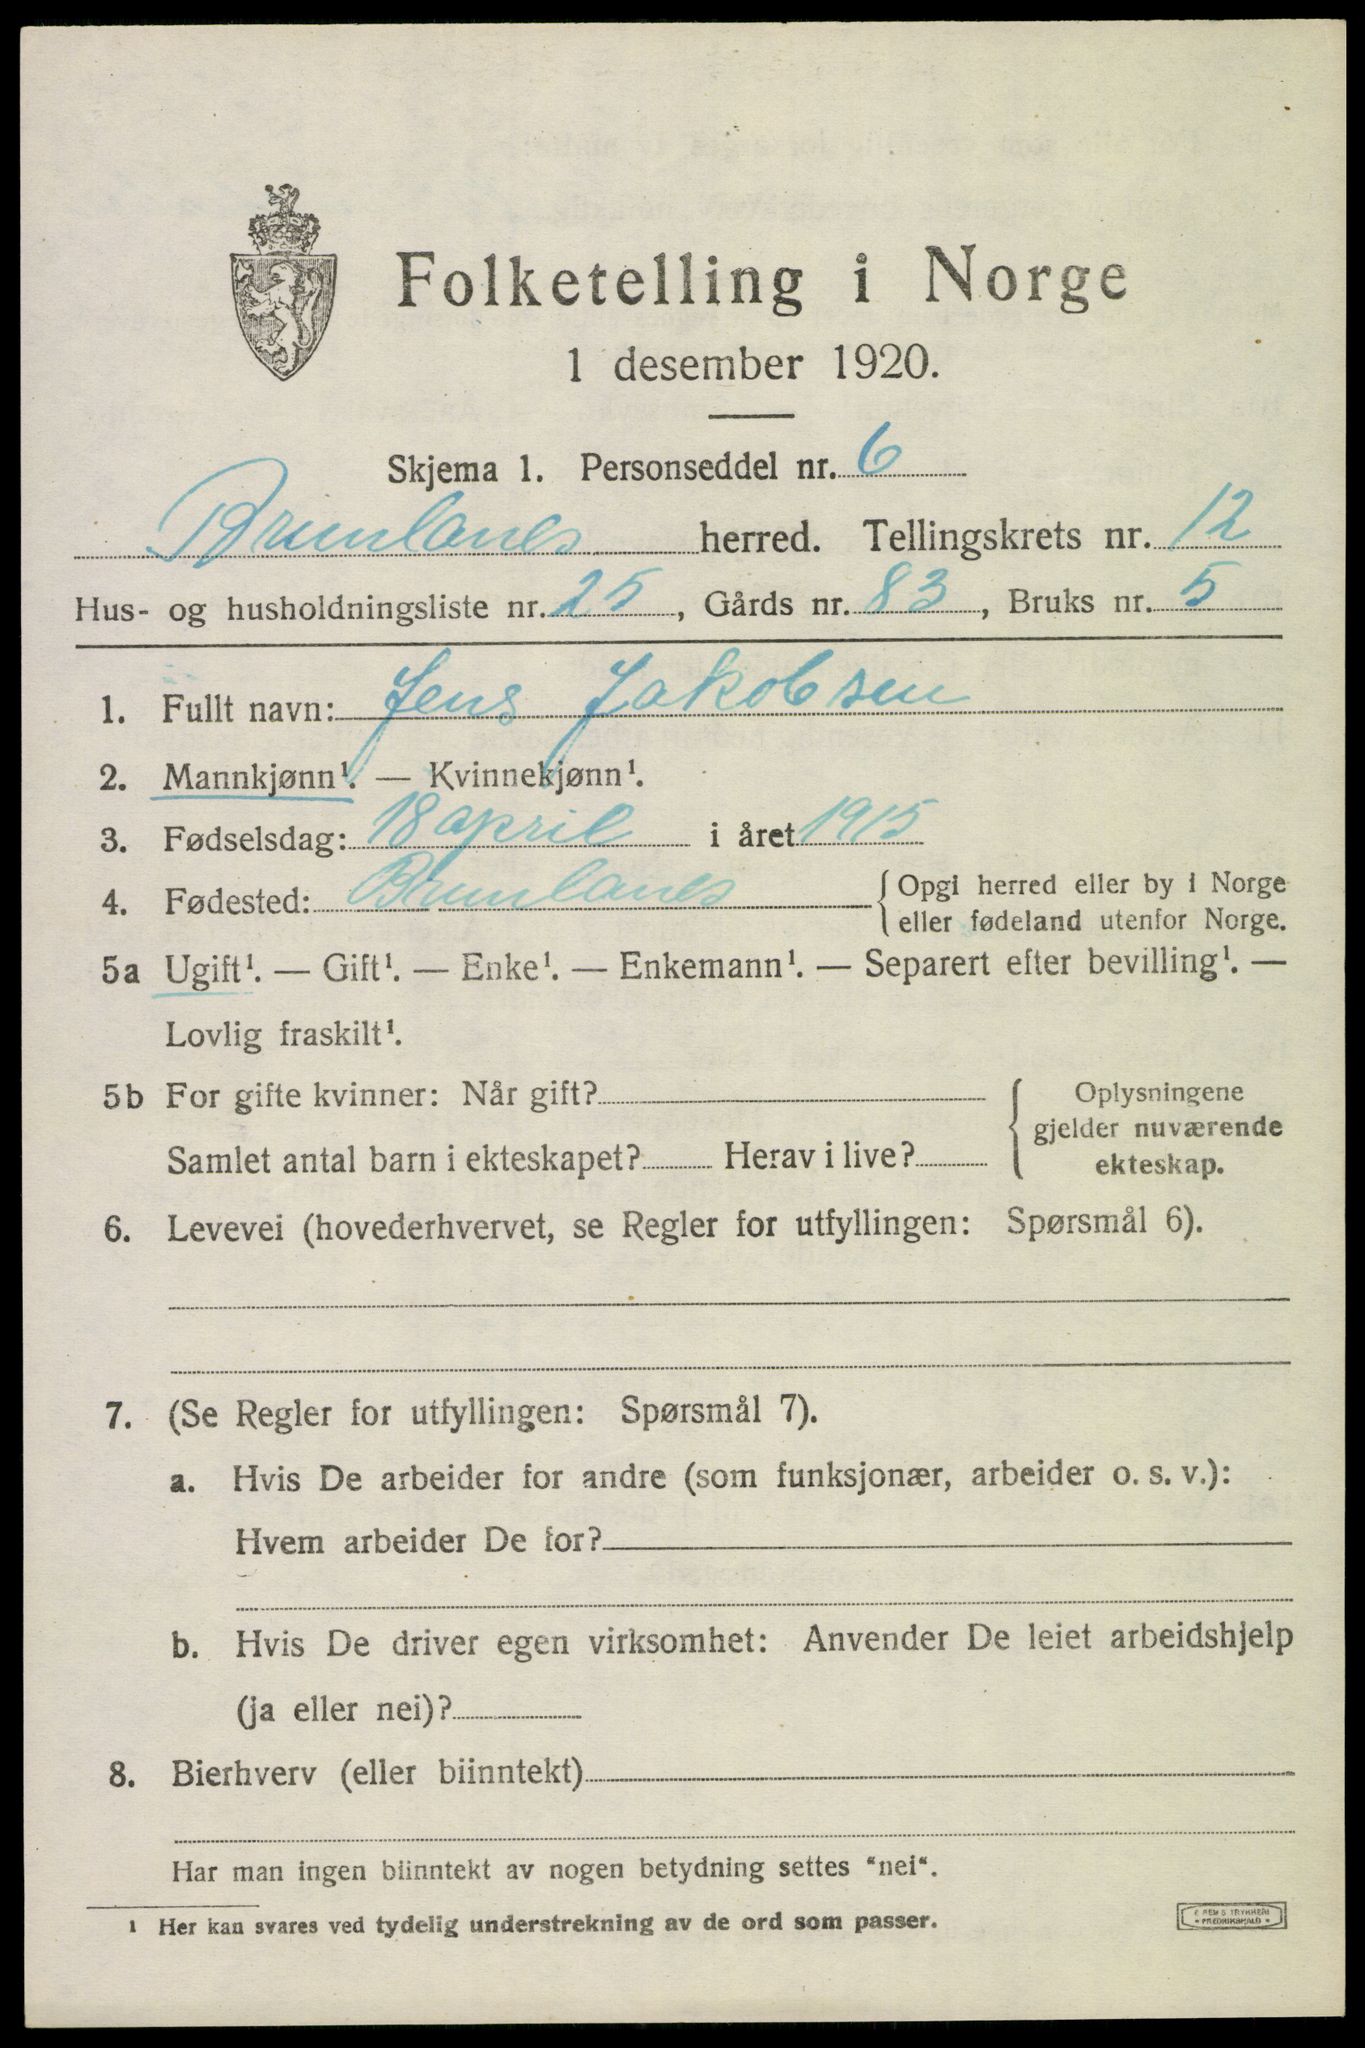 Folketelling i Norge
1 desember 1920.
Skjema 1. Personseddel nr. 6
Brunlanes herred. Tellingskrets nr. 12
Hus- og husholdningsliste nr. 25, Gårds nr. 83, Bruks nr. 5
1. Fullt navn: Jens Jakobsen
2. Mannkjønn¹. — Kvinnekjønn¹.
3. Fødselsdag: 18 april i året 1915
4. Fødested: Brunlanes { Opgi herred eller by i Norge
eller fødeland utenfor Norge.
5a Ugift¹. — Gift¹. — Enke¹. — Enkemann¹. — Separert efter bevilling¹. —
Lovlig fraskilt¹.
5b For gifte kvinner: Når gift?
Samlet antal barn i ekteskapet? Herav i live?
Oplysningene
gjelder nuværende
ekteskap.
6. Levevei (hovederhvervet, se Regler for utfyllingen: Spørsmål 6).
7. (Se Regler for utfyllingen: Spørsmål 7).
a. Hvis De arbeider for andre (som funksjonær, arbeider o. s. v.):
Hvem arbeider De for?
b. Hvis De driver egen virksomhet: Anvender De leiet arbeidshjelp
(ja eller nei)?
8. Bierhverv (eller biinntekt)
Har man ingen biinntekt av nogen betydning settes "nei".
¹ Her kan svares ved tydelig understrekning av de ord som passer.
TRYKKERI
FREDRIKSHALD